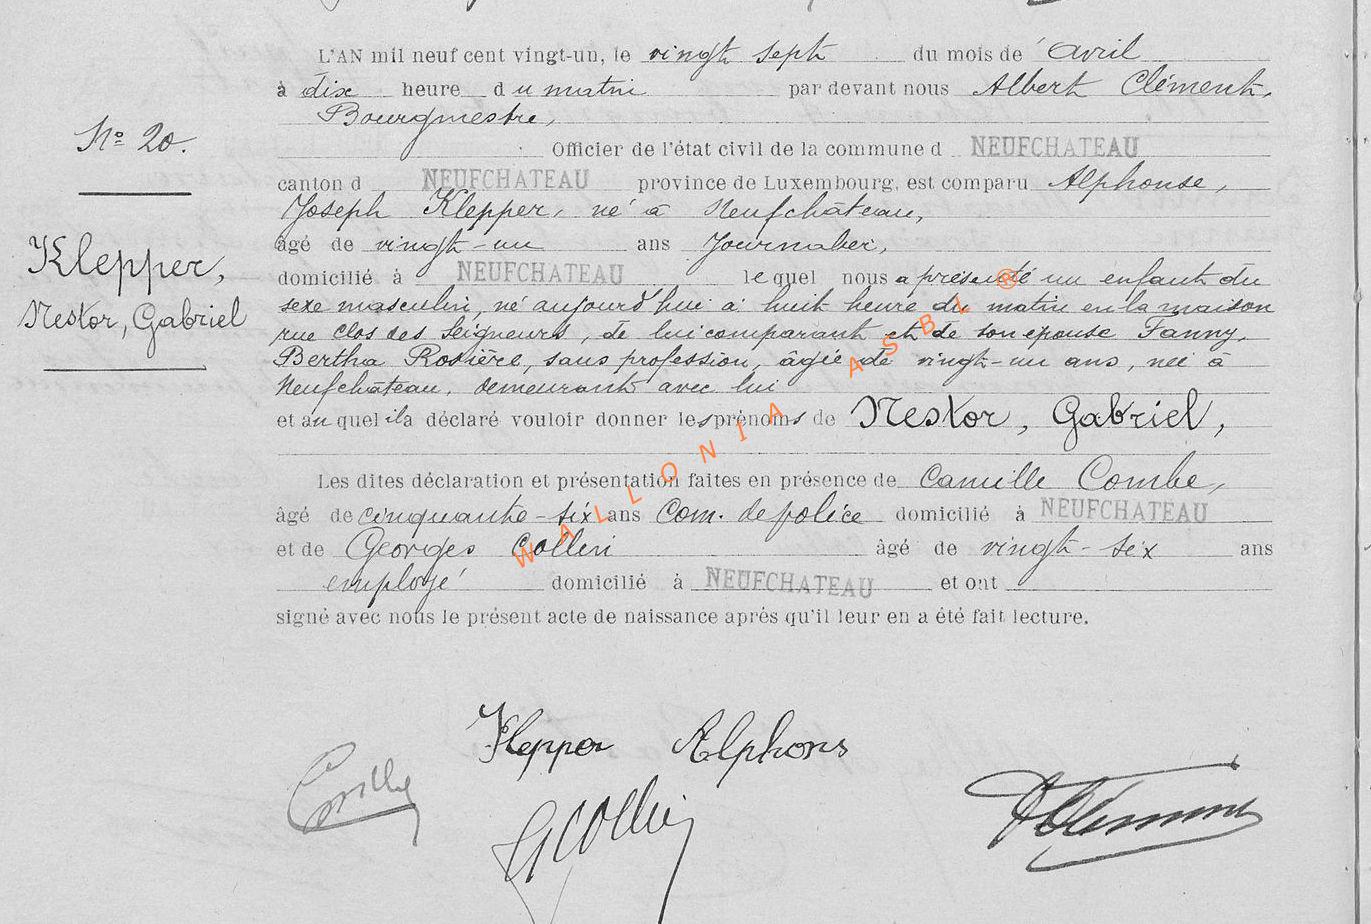 L'AN mil neuf cent vingt-un, le vingt sept du mois de Avril
à dix heure du matin par devant nous Albert Clément,
Bourgmestre,
Officier de l'état civil de la commune d NEUFCHATEAU
Nº 20.
canton d NEUFCHATEAU province de Luxembourg, est comparu Alphonse,
Joseph Klepper, né à Neufchâteau,
âgé de vingt-un ans Journalier,
Klepper,
Nestor, Gabriel
domicilié à NEUFCHATEAU lequel nous a présenté un enfant du
sexe masculin, né aujourd'hui à huit heure du matin en la maison
rue clos des Seigneurs, de lui comparant et de son épouse Fanny,
Bertha Rosière, sans profession, âgée de vingt-un ans, née à
Neufchâteau, demeurant avec lui
et auquel il a déclaré vouloir donner les prénoms de Nestor, Gabriel,
Les dites déclaration et présentation faites en présence de Camille Combe,
âgé de cinquante-six ans Com. de police domicilié à NEUFCHATEAU
et de Georges Collin âgé de vingt-six ans
employé domicilié à NEUFCHATEAU et ont
signé avec nous le présent acte de naissance après qu'il leur en a été fait lecture.
WALLONIA ASBL ®
Klepper Alphons
G Collin